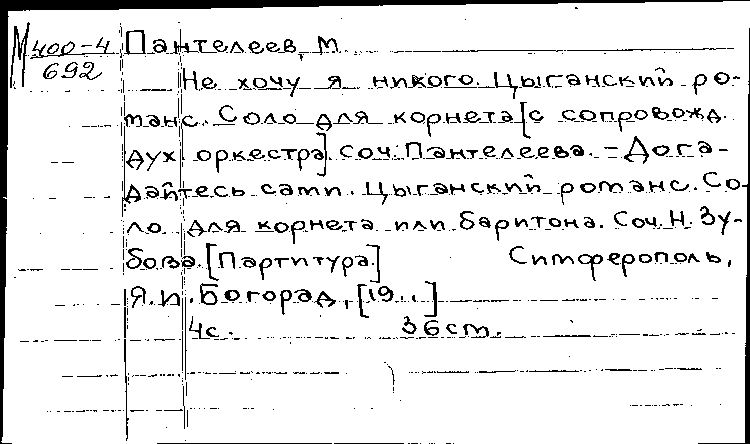 М 400-4 Пантелеев, М.
692
Не хочу я никого. Цыганский ро-
манс. Соло для корнета [с сопровожд.
дух оркестра]. Соч. Пантелеева. – Дога-
дайтесь сами. Цыганский романс. Со-
ло для корнета или баритона. Соч. Н. Зу-
бова. [Партитура.] Симферополь,
Я.И. Богорад, [19..]
4с. 36ст.